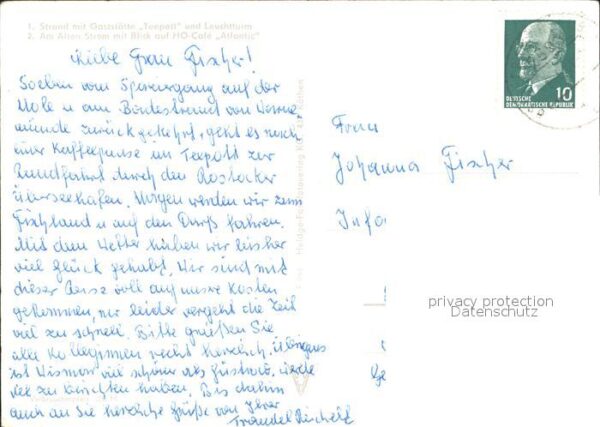 1. Strand mit Gaststätte „Teepott" und Leuchtturm
2. Am Alten Strom mit Blick auf HO-Café „Atlantic"
Liebe Frau Fischer!
Soeben vom Spaziergang auf der
Mole u am Badestrand von Warne-
münde zurückgekehrt, geht es nach
einer Kaffeepause im Teepott zur
Rundfahrt durch den Rostocker
Überseehafen. Morgen werden wir zum
Fischland u auf den Darß fahren.
Mit dem Wetter haben wir bisher
viel Glück gehabt. Wir sind mit
dieser Reise voll auf unsre Kosten
gekommen, nur leider vergeht die Zeit
viel zu schnell. Bitte grüßen Sie
alle Kolleginnen recht herzlich. Übrigens
ist Wismar viel schöner als Güstrow. Werde
viel zu berichten haben. Bis dahin
auch an Sie herzliche Grüße von Ihrer
Traudel Reichelt
DEUTSCHE
DEMOKRATISCHE REPUBLIK
10
Frau
Johanna Fischer
privacy protection
Datenschutz